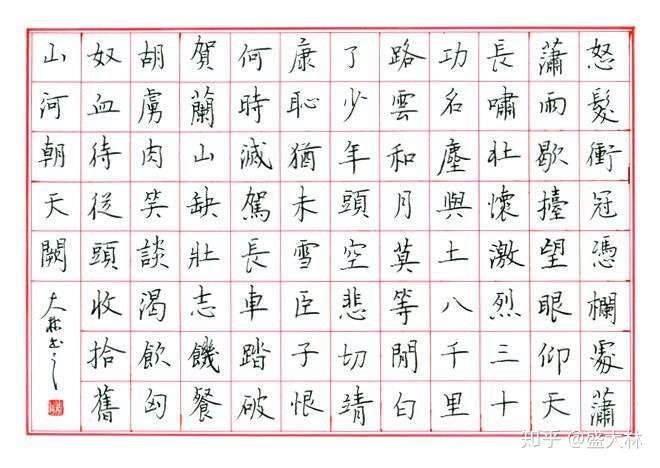 怒髮衝冠憑欄處瀟
瀟雨歇擡望眼仰天
長嘯壯懷激烈三十
功名塵與土八千里
路雲和月莫等閒白
了少年頭空悲切靖
康恥猶未雪臣子恨
何時滅駕長車踏破
賀蘭山缺壯志饑餐
胡虜肉笑談渴飲匈
奴血待從頭收拾舊
山河朝天闕
大林書之
知乎 @盛大林